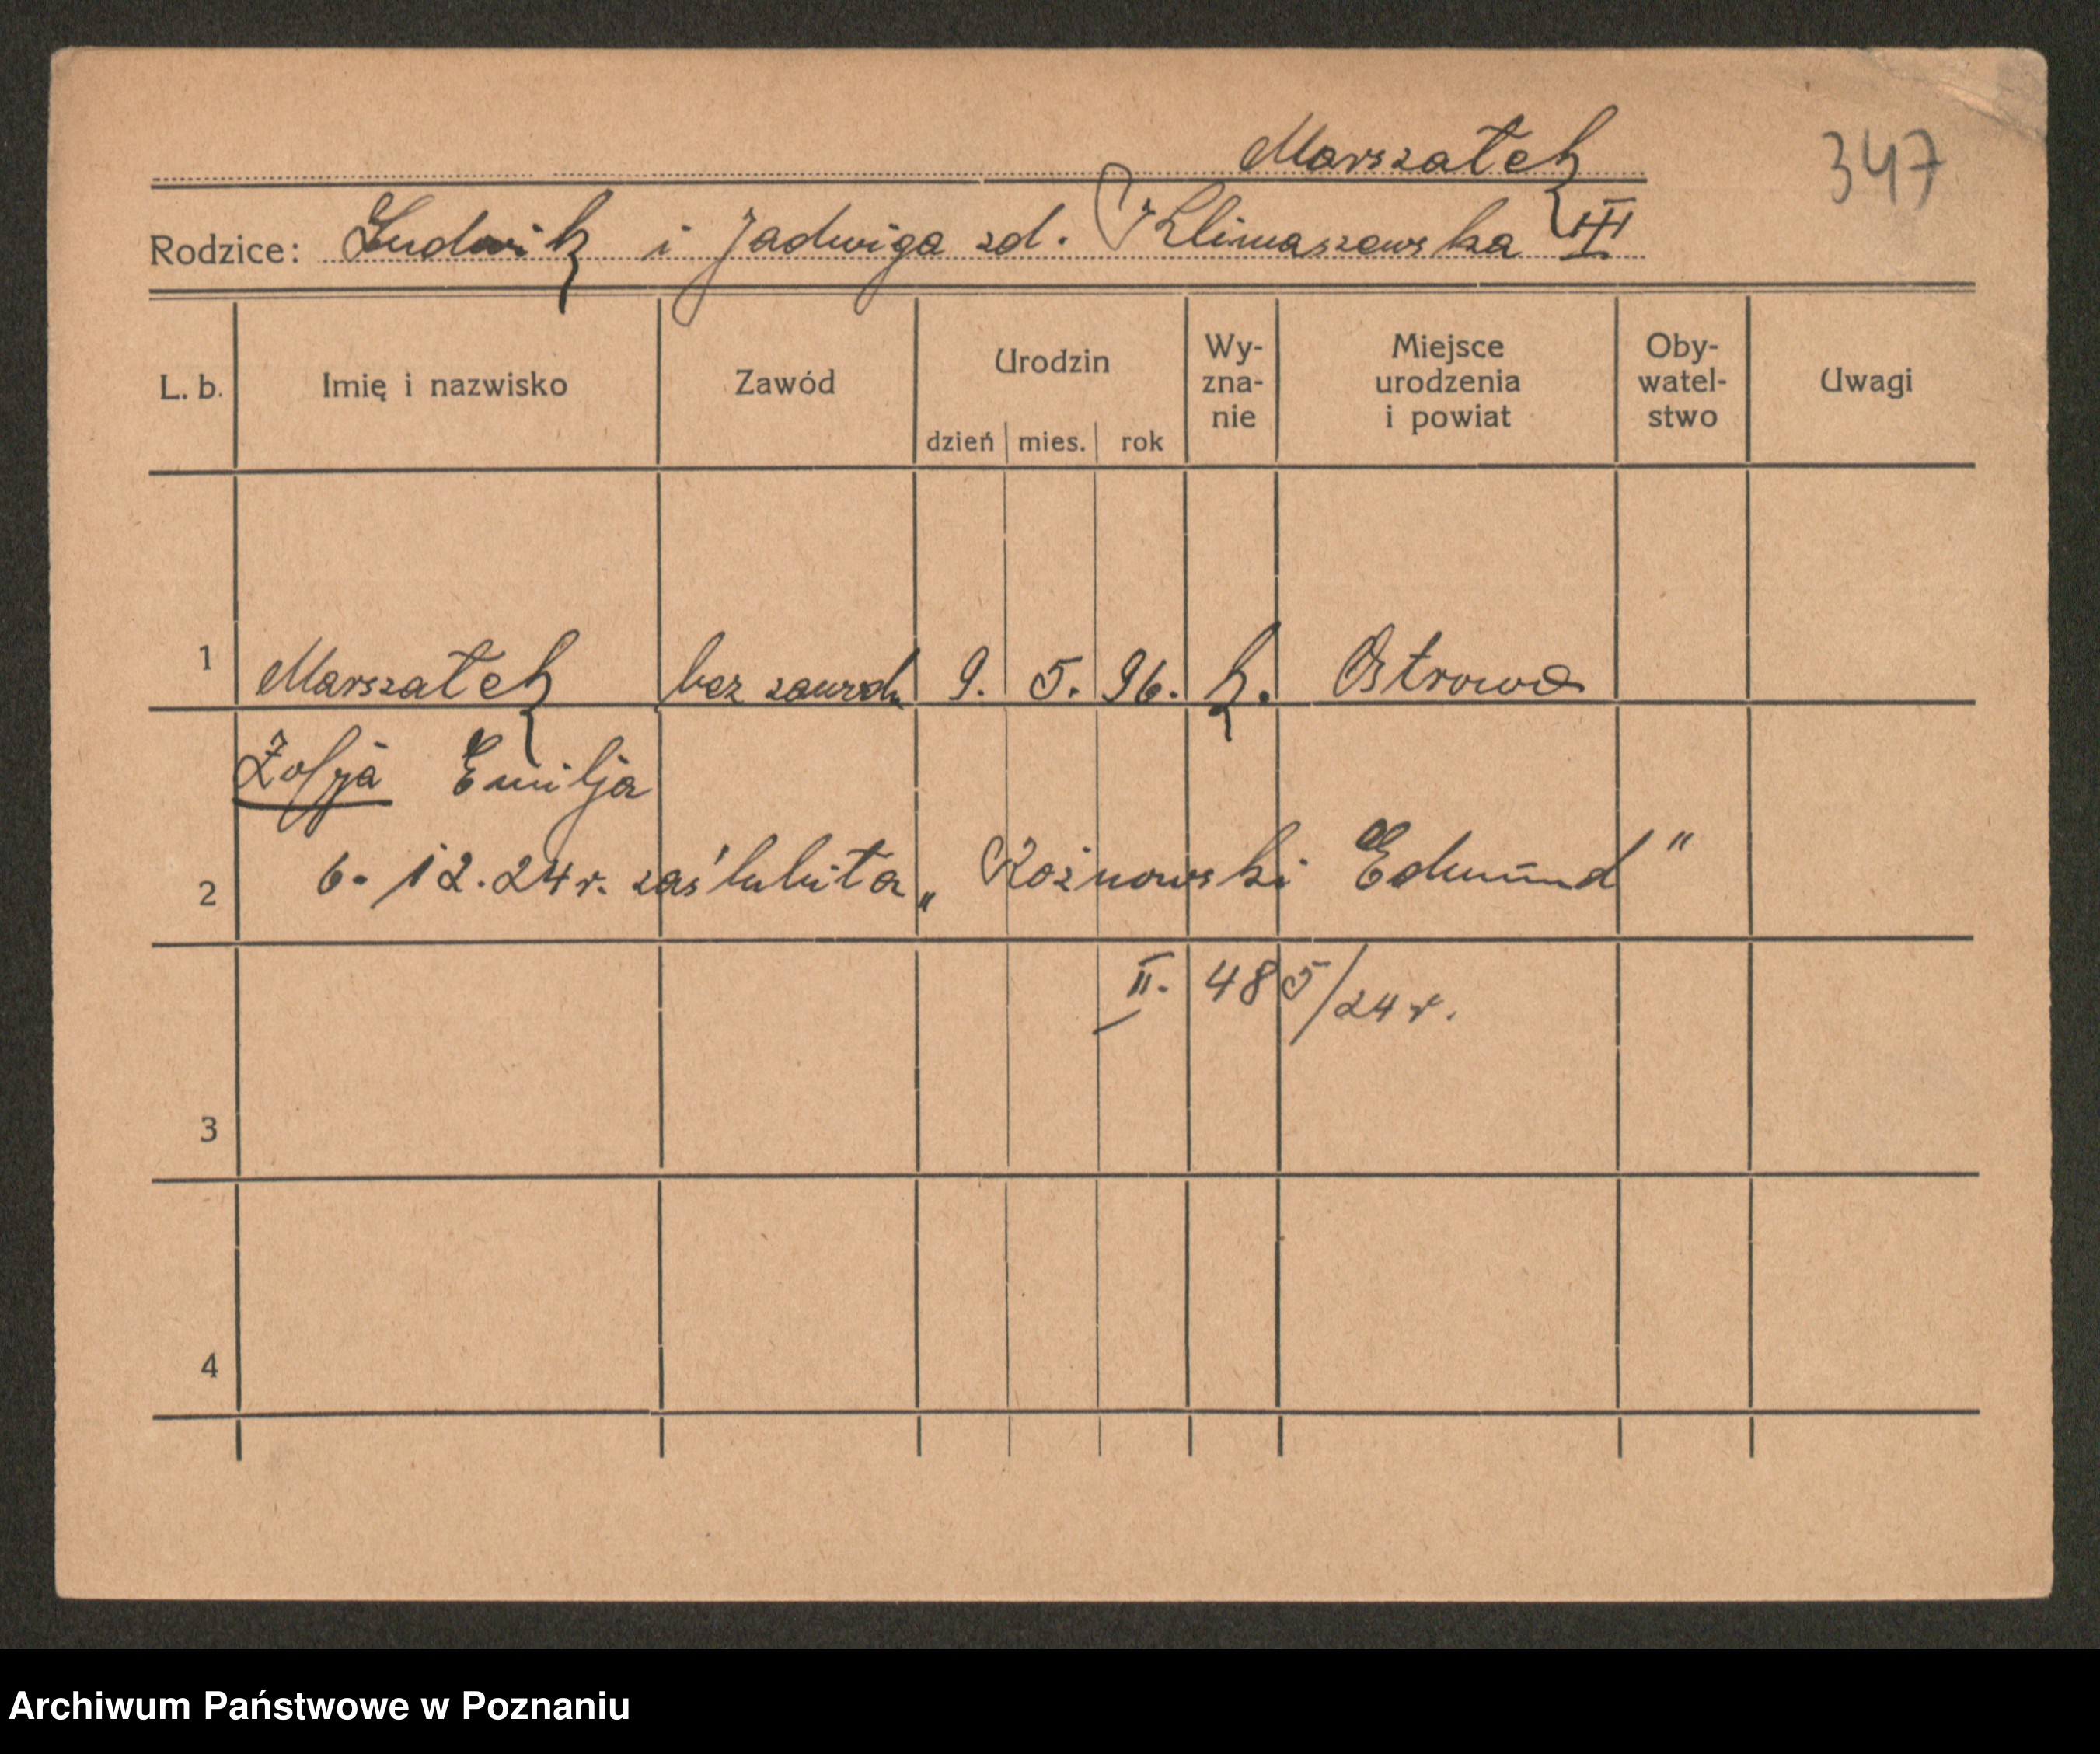 Marszałek
347
Rodzice: Ludwik i Jadwiga zd. Klimaszewska III
L. b. Imię i nazwisko Zawód Urodzin dzień mies. rok Wy-zna-nie Miejsce urodzenia i powiat Oby-watel-stwo Uwagi
1 Marszałek bez zawodu 9. 5. 96. k. Ostrowo
Zofja Emilja
2 6. 12. 24 r. zaślubiła „Rożnowski Edmund"
II. 485/24 r.
3
4
Archiwum Państwowe w Poznaniu